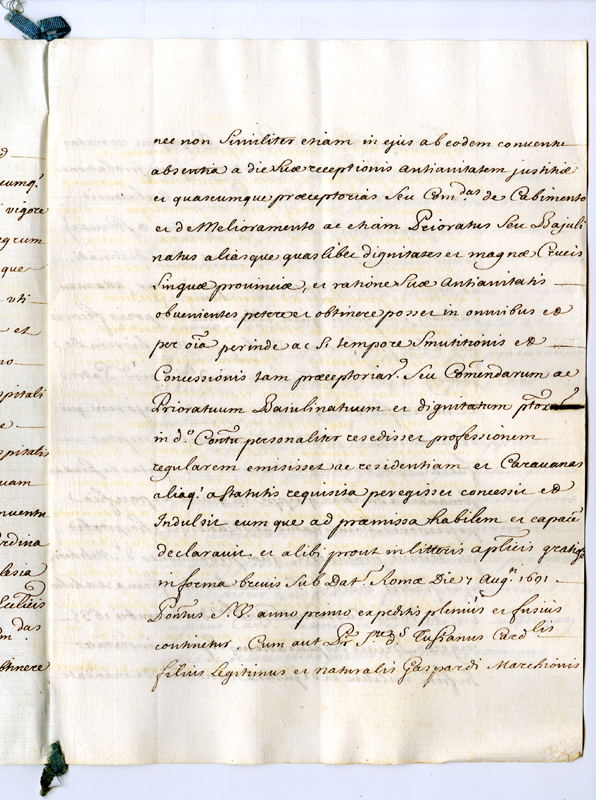 d
cumq.
vigore
egrum
que
uti
et
no
spitali
e
spitalis
uam
nventu
rdina
lesia
das
btinere
nec non similiter etiam in ejus ab eodem conventu
absentia a die suæ receptionis antianitatem justitiæ
et quascumque præceptorias seu Com.das de Cabimento
et de Melioramento ac etiam Prioratus seu Bajuli
natus aliasque quaslibet dignitates et magnæ Crucis
linguæ provinciæ, et ratione suæ Antianitatis
obvenientes petere et obtinere posset in omnibus et
per oīa perinde ac si tempore Smutitionis et
Concessionis tam præceptoriar. seu Comēndarum ac
Prioratuum Baiulinatuum et dignitatum
in d.o Convtu personaliter resedisset professionem
regularem emisisset ac residentiam et Caravanas
aliaq. a statutis requisita peregisset concessit et
Indulsit eumque ad præmissa habilem et capacē
declaravit et alibi prout in litteris apl̄icis gratiose
in forma brevis sub Dat. Romæ Die 7 Aug.ti 1691
Pontus S.V. anno primo expeditis plenius et fusius
continetur. Cum aut Dr. d.s Tussianus Card lis
filius legitimus et naturalis Gaspardi Marchionis